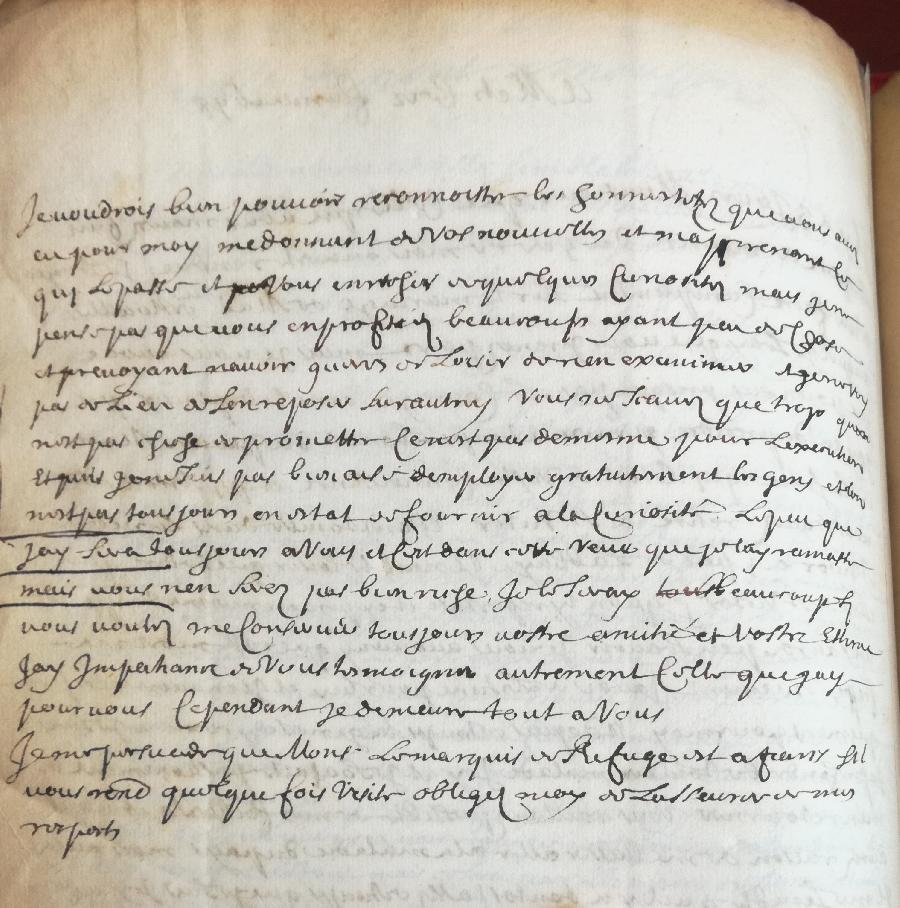 Je voudrois bien pouvoir reconnoistre les honnestetez que vous avez
eu pour moy me donnant de vos nouvelles et m'apprenant ce
qui se passe et vous enrichir de quelques Curiositez mais je ne
pense pas que vous en profitiez beaucoup ayant peu de Chose
et prevoyant n'avoir gueres de Loisir de rien examiner et je ne voy
pas de Lieu de s'en reposer sur autruy Vous ne Scavez que trop que ce
n'est pas chose de promettre Ce n'est pas de mesme pour L'execution
Et puis je ne suis pas bien aise d'employer gratuitement les gens et l'on
n'est pas tousjours en estat de fournir a la Curiosité. Le peu que
j'ay sera tousjours a Vous et C'est dans cette Veue que je l'ay ramassé
mais vous n'en serez pas bien riche, Je le Seray beaucoup si
vous voulez me Conserver tousjours vostre amitié et Vostre Estime
J'ay Impatiance de Vous tesmoigner autrement Celle que j'ay
pour vous Cependant je demeure tout a Vous
Je me persuade que Mons. Le marquis de Refuge est a Paris s'il
vous rend quelque fois Visite obligez moy de L'asseurer de mes
respects